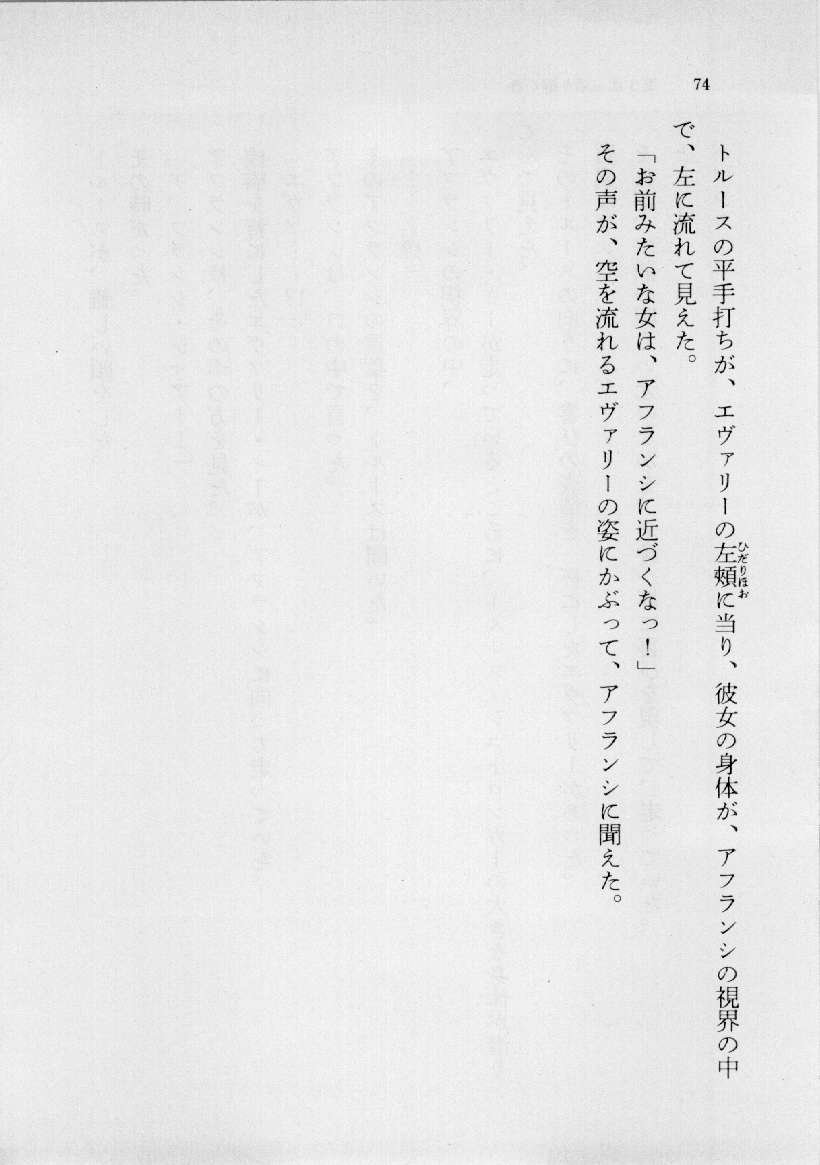 74
トルースの平手打ちが、エヴァリーの左頰に当り、彼女の身体が、アフランシの視界の中
ひだりほお
で、左に流れて見えた。
「お前みたいな女は、アフランシに近づくなっ！」
その声が、空を流れるエヴァリーの姿にかぶって、アフランシに聞えた。